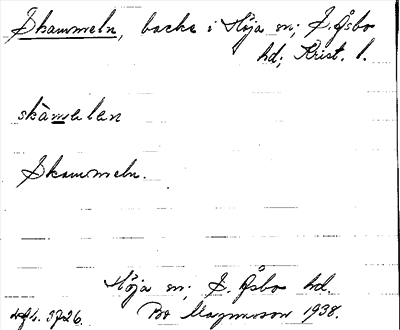 Skammeln, backe i Höja sn; S. Åsbo
hd; Krist. l.
skàmelan
Skammeln.
Höja sn; S. Åsbo hd.
Bo Magnusson 1938.